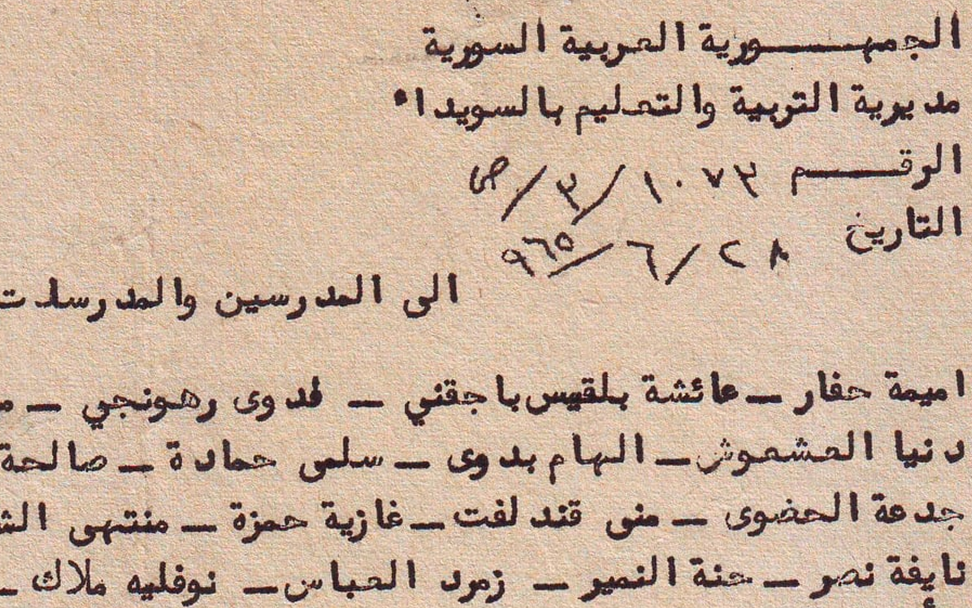 الجمهـــورية العربية السورية
مديرية التربية والتعليم بالسويداء
الرقــــم ١٠٧٣ / ٣ / ص
التاريخ ٢٨ / ٦ / ٩٦٥
الى المدرسين والمدرسات
اميمة حفار ــ عائشة بلقيس باجقني ــ فدوى رهونجي ــ
دنيا العشعوش ــ الهام بدوى ــ سلمى حمادة ــ صالحة
جدعة الحضوى ــ منى قندلفت ــ غازية حمزة ــ منتهى
نايفة نصر ــ حنة النمير ــ زمرد العباس ــ نوفليه ملاك ــ